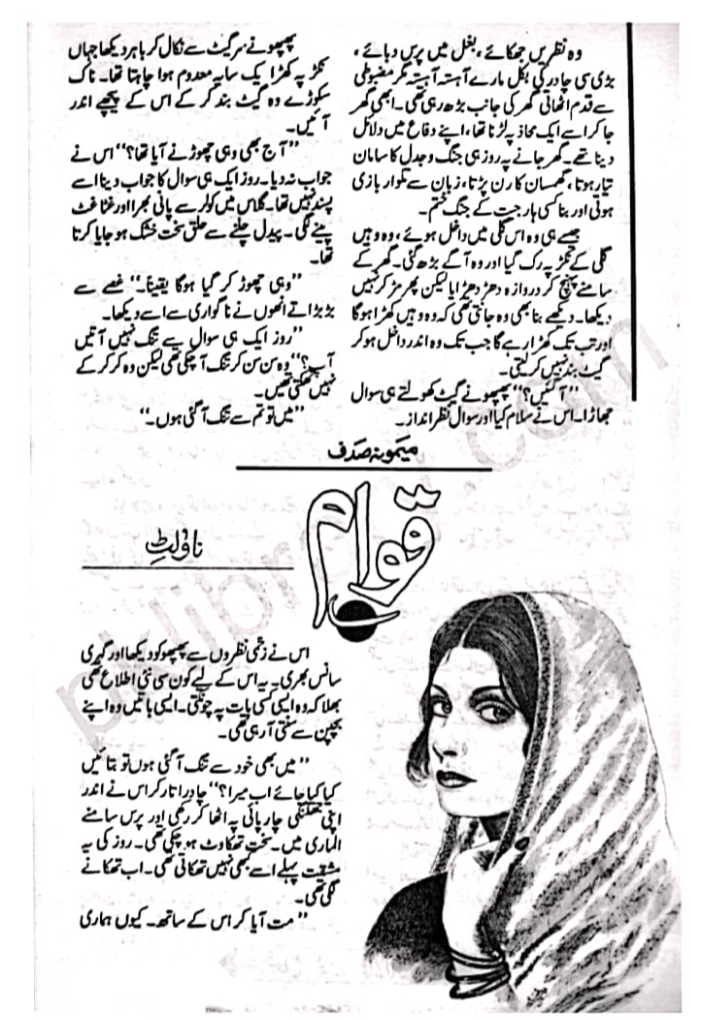 وہ نظریں جھکائے، بغل میں پرس دبائے،
بڑی سی چادر کی بکل مارے آہستہ آہستہ مگر مضبوطی
سے قدم اٹھاتی گھر کی جانب بڑھ رہی تھی۔ ابھی گھر
جا کر اسے ایک محاذ پہ لڑنا تھا، اپنے دفاع میں دلائل
دینا تھے۔ گھر جانے پہ روز ہی جنگ و جدل کا سامان
تیار ہوتا، گھمسان کا رن پڑتا، زبان سے تلوار بازی
ہوتی اور بنا کسی ہار جیت کے جنگ ختم۔
جیسے ہی وہ اس گلی میں داخل ہوئے، وہ وہیں
گلی کے نکڑ پہ رک گیا اور وہ آگے بڑھ گئی۔ گھر کے
سامنے پہنچ کر دروازہ دھڑ دھڑایا لیکن پھر مڑ کر نہیں
دیکھا۔ دیکھے بنا بھی وہ جانتی تھی کہ وہ وہیں کھڑا ہوگا
اور تب تک کھڑا رہے گا جب تک وہ اندر داخل ہو کر
گیٹ بند نہیں کر لیتی۔
”آ گئیں؟“ پھپھو نے گیٹ کھولتے ہی سوال
جھاڑا۔ اس نے سلام کیا اور سوال نظر انداز۔
پھپھو نے سر گیٹ سے نکال کر باہر دیکھا جہاں
نکڑ پہ کھڑا ایک سایہ معدوم ہوا چاہتا تھا۔ ناک
سکوڑے وہ گیٹ بند کر کے اس کے پیچھے اندر
آئیں۔
”آج بھی وہی چھوڑنے آیا تھا؟“ اس نے
جواب نہ دیا۔ روز ایک ہی سوال کا جواب دینا اسے
پسند نہیں تھا۔ گلاس میں کولر سے پانی بھرا اور غٹا غٹ
پینے لگی۔ پیدل چلنے سے حلق سخت خشک ہو جایا کرتا
تھا۔
”وہی چھوڑ کر گیا ہوگا یقیناً۔“ غصے سے
بڑبڑاتے انھوں نے ناگواری سے اسے دیکھا۔
”روز ایک ہی سوال سے تنگ نہیں آتیں
آپ؟“ وہ سن سن کر تنگ آ چکی تھی لیکن وہ کر کر کے
نہیں تھکتی تھیں۔
”میں تو تم سے تنگ آ گئی ہوں۔“
میمونہ صدف
قوام
ناولٹ
اس نے زخمی نظروں سے پھپھو کو دیکھا اور گہری
سانس بھری۔ یہ اس کے لیے کون سی نئی اطلاع تھی
بھلا کہ وہ ایسی کسی بات پہ چونکتی۔ ایسی باتیں وہ اپنے
بچپن سے سنتی آ رہی تھی۔
”میں بھی خود سے تنگ آ گئی ہوں تو بتائیں
کیا کیا جائے اب میرا؟“ چادر اتار کر اس نے اندر
اپنی جھلنگی چارپائی پہ اٹھا کر رکھی اور پرس سامنے
الماری میں۔ سخت تھکاوٹ ہو چکی تھی۔ روز کی یہ
مشقت پہلے اسے کبھی نہیں تھکاتی تھی۔ اب تھکانے
لگی تھی۔
”مت آیا کر اس کے ساتھ۔ کیوں ہماری